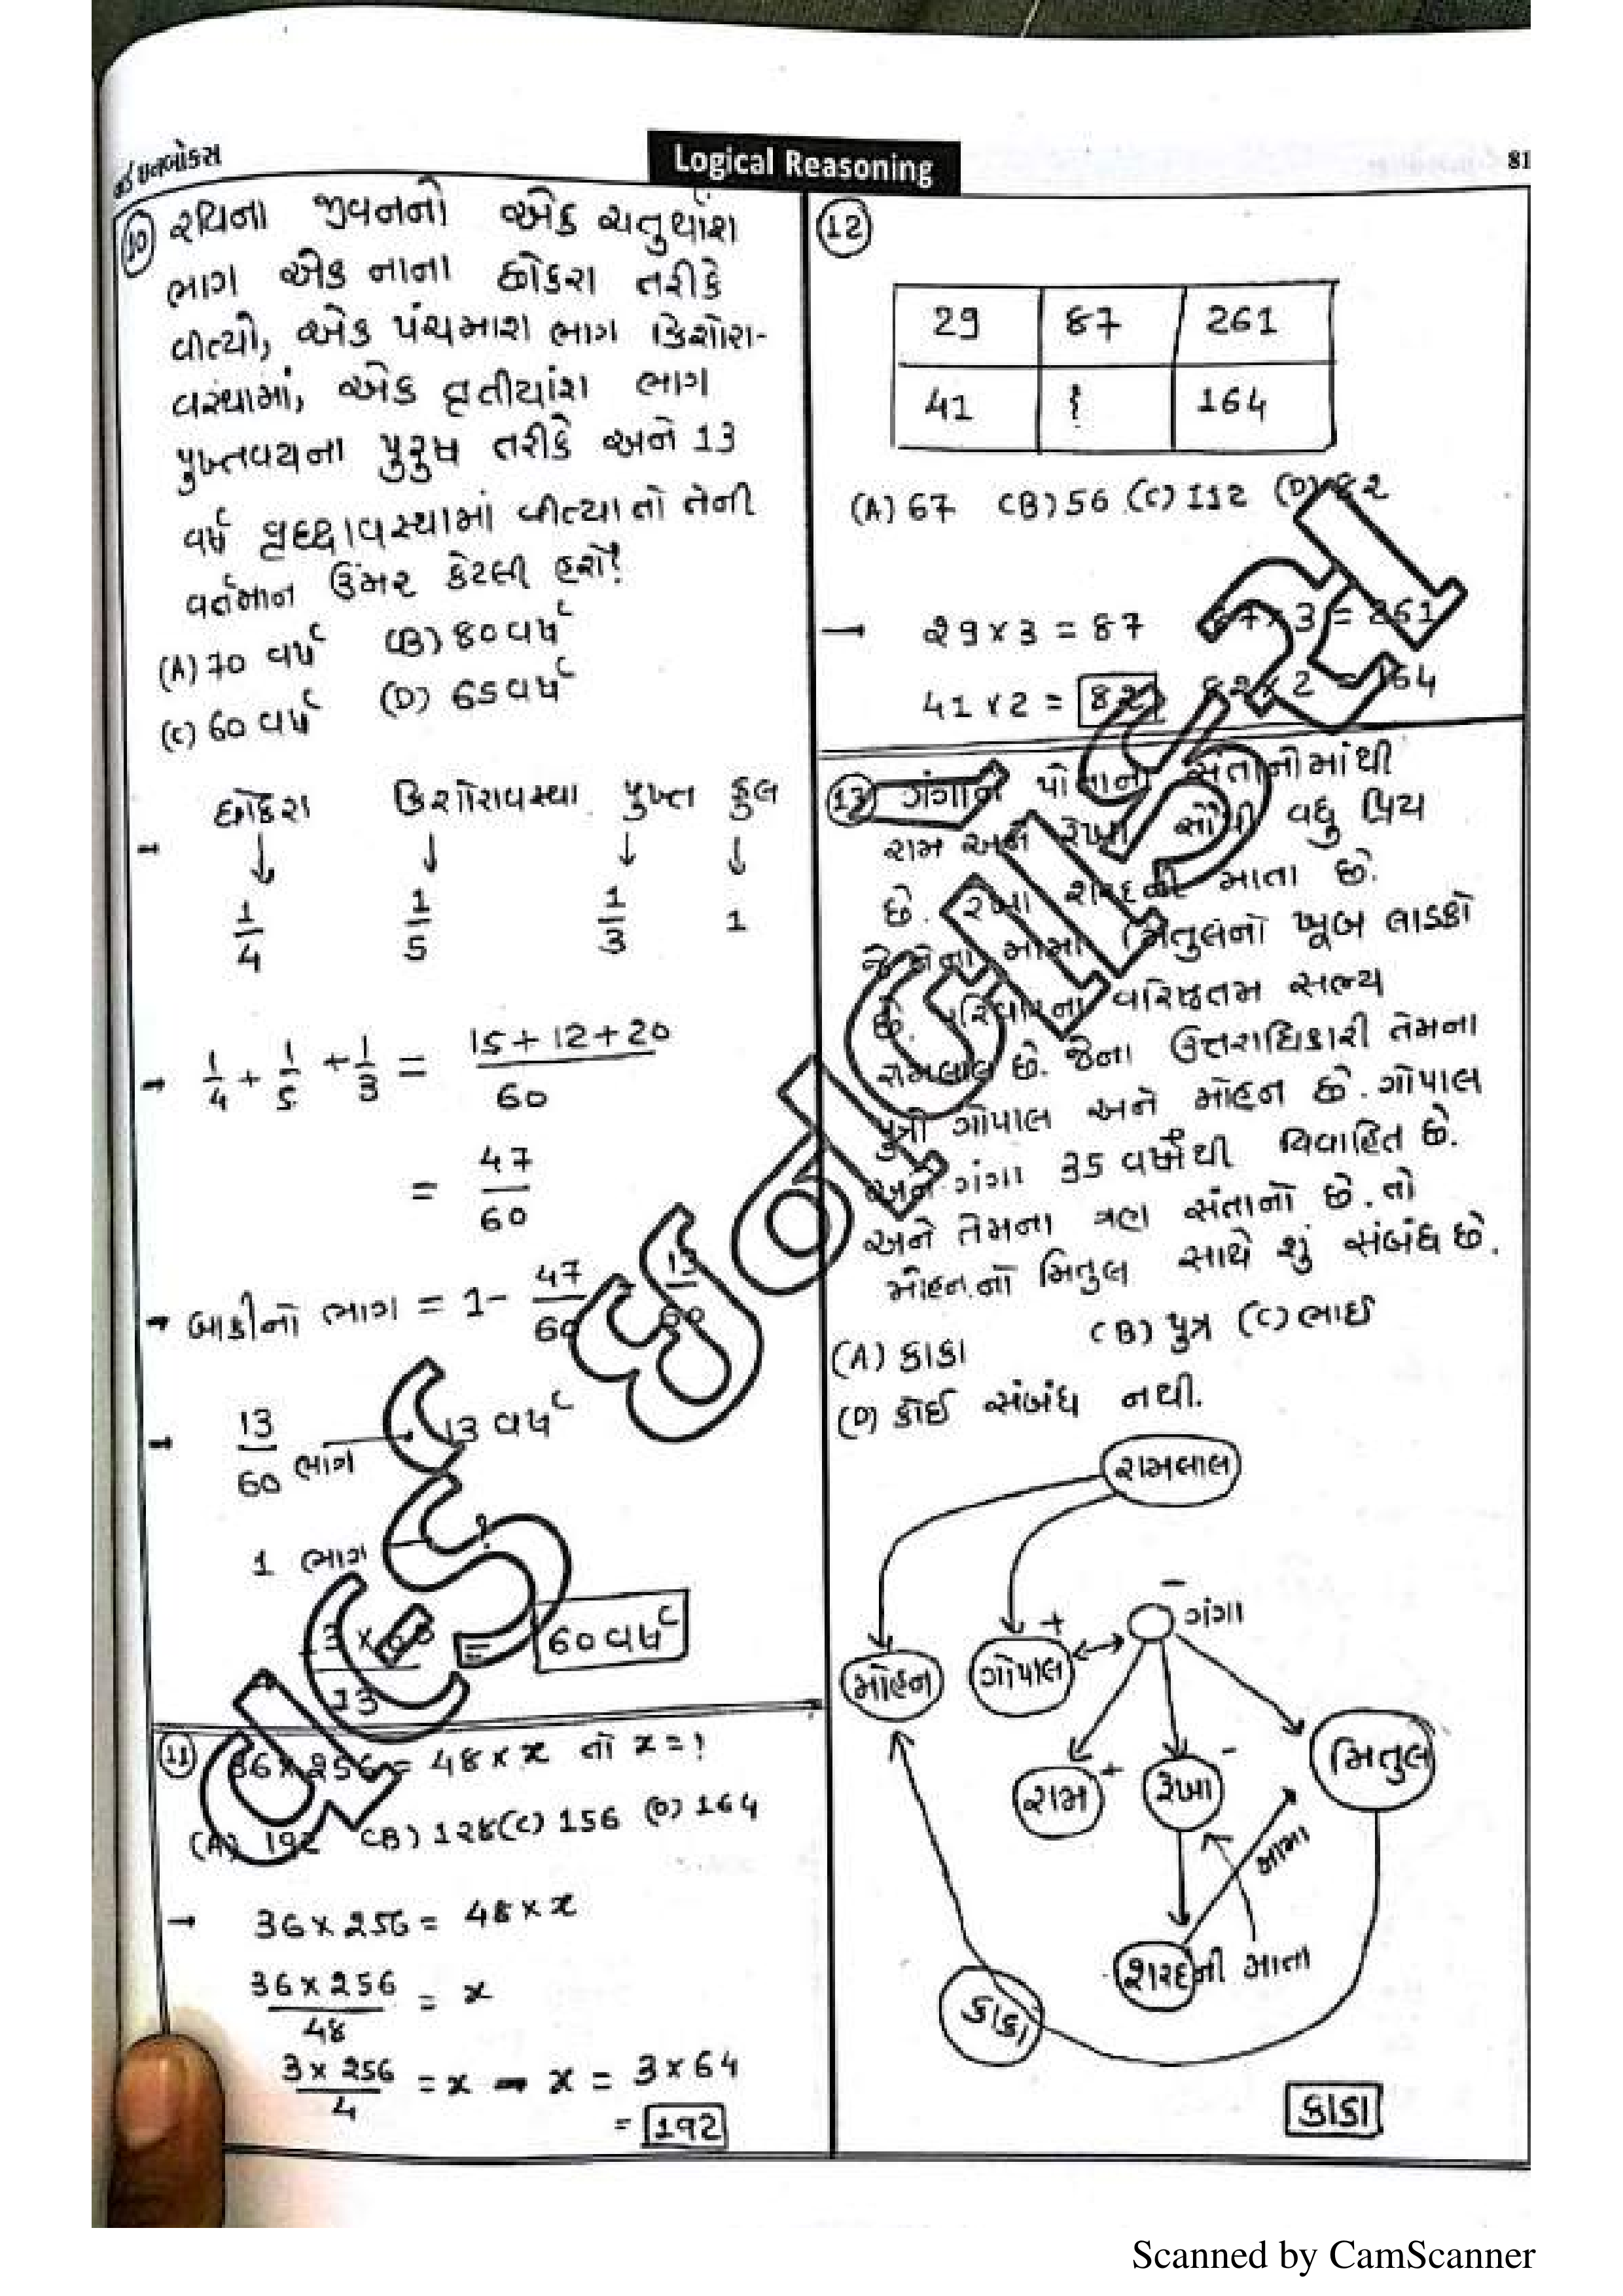 Logical Reasoning
81
10 રવિના જીવનનો એક ચતુર્થાંશ
ભાગ એક નાના છોકરા તરીકે
વીત્યો, એક પંચમાશ ભાગ કિશોરા-
વસ્થામાં, એક તૃતીયાંશ ભાગ
પુખ્તવયના પુરુષ તરીકે અને 13
વર્ષ વૃદ્ધાવસ્થામાં વીત્યા તો તેની
વર્તમાન ઉંમર કેટલી હશે?
(A) 70 વર્ષ (B) 80 વર્ષ
(C) 60 વર્ષ (D) 65 વર્ષ
છોકરા કિશોરાવસ્થા પુખ્ત કુલ
→ ↓ ↓ ↓ ↓
1/4 1/5 1/3 1
→ 1/4 + 1/5 + 1/3 = 15+12+20/60
= 47/60
→ બાકીનો ભાગ = 1 - 47/60 = 13/60
→ 13/60 ભાગ — 13 વર્ષ
1 ભાગ — ?
13 × 60/13 = 60 વર્ષ
11 36 × 256 = 48 × x તો x = ?
(A) 192 (B) 128 (C) 156 (D) 164
→ 36 × 256 = 48 × x
36 × 256/48 = x
3 × 256/4 = x → x = 3 × 64
= 192
12
29 87 261
41 ? 164
(A) 67 (B) 56 (C) 112 (D) 82
→ 29 × 3 = 87 87 × 3 = 261
41 × 2 = 82 82 × 2 = 164
13 ગંગાને પોતાના સંતાનોમાંથી
રામ અને રેખા સૌથી વધુ પ્રિય
છે. રેખા શરદની માતા છે.
જે તેના મામા મિતુલનો ખૂબ લાડકો
છે. પરિવારના વરિષ્ઠતમ સભ્ય
રામલાલ છે. જેના ઉત્તરાધિકારી તેમના
પુત્રો ગોપાલ અને મોહન છે. ગોપાલ
અને ગંગા 35 વર્ષોથી વિવાહિત છે.
અને તેમના ત્રણ સંતાનો છે. તો
મોહનનો મિતુલ સાથે શું સંબંધ છે.
(A) કાકા (B) પુત્ર (C) ભાઈ
(D) કોઈ સંબંધ નથી.
રામલાલ
મોહન ગોપાલ + - ગંગા
રામ + રેખા - મિતુલ
મામા
શરદની માતા
કાકા
કાકા
Scanned by CamScanner